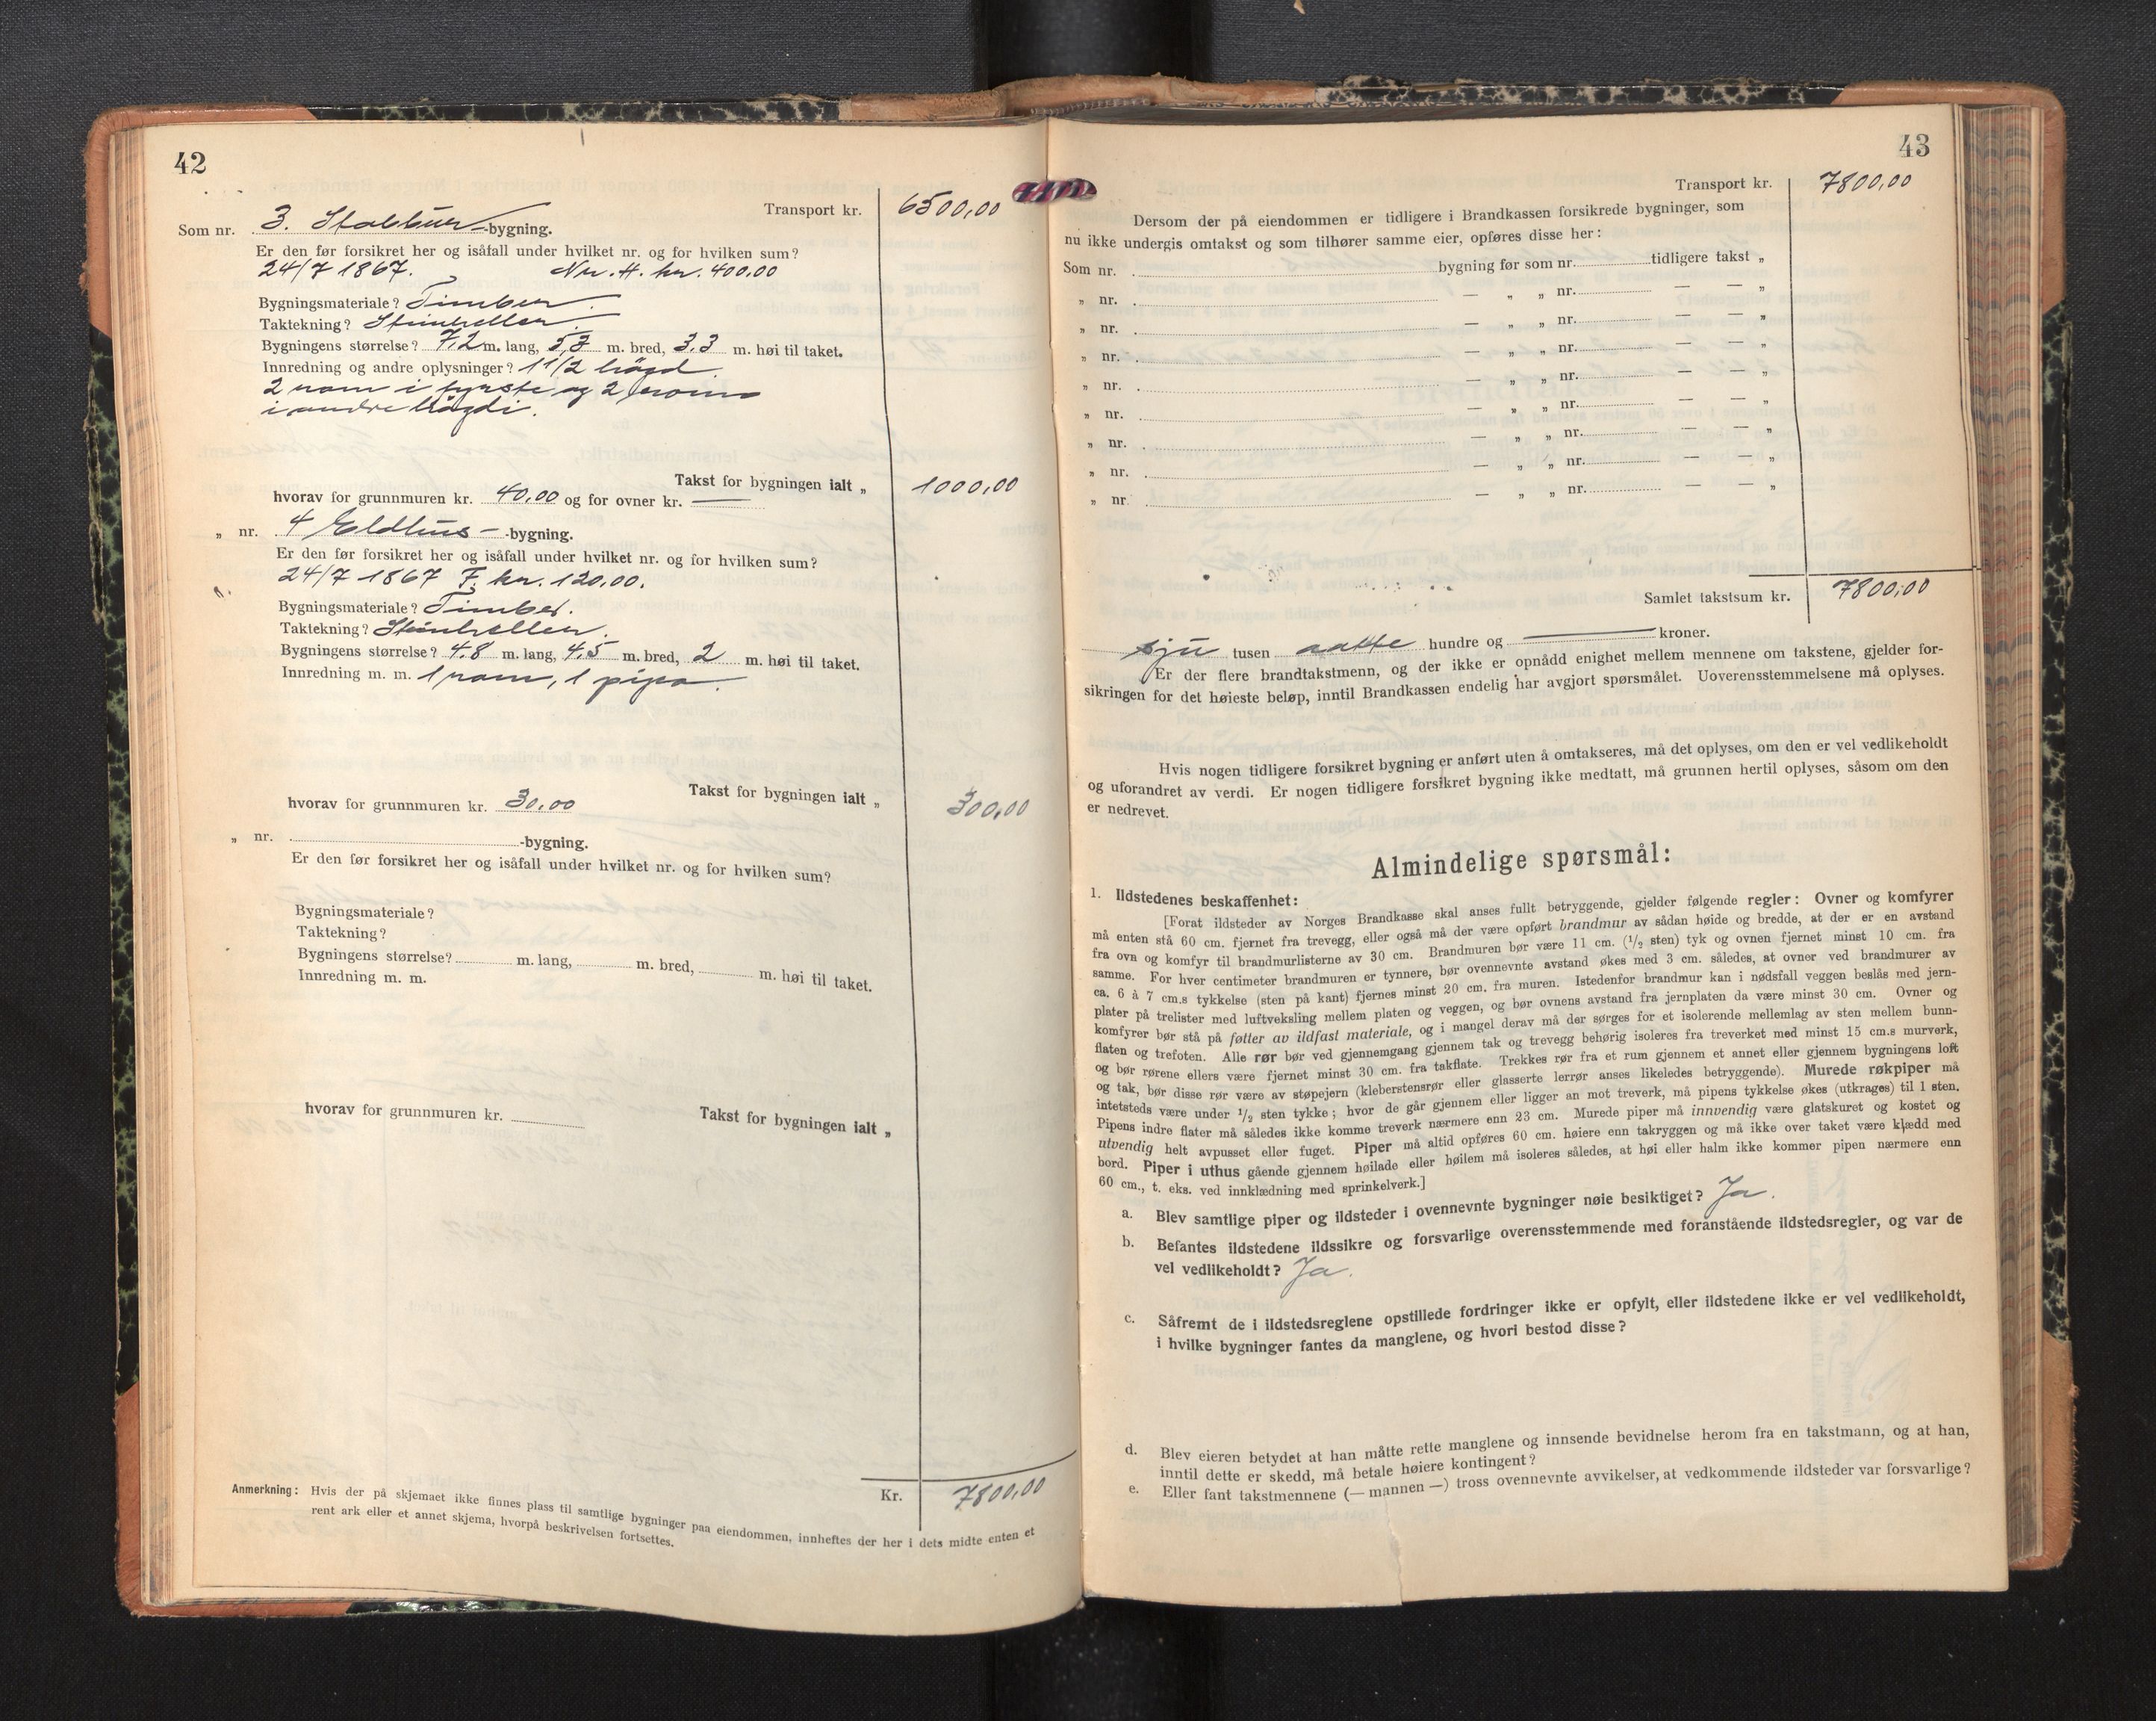 42
Transport kr. 6500,00
Som nr. 3. Stabbur- -bygning.
Er den før forsikret her og isåfall under hvilket nr. og for hvilken sum?
24/7 1867. Nr. H. kr. 400,00
Bygningsmateriale? Timber.
Taktekning? Steinheller.
Bygningens størrelse? 7,2 m. lang, 5,3 m. bred, 3.3 m. høi til taket.
Innredning og andre oplysninger? 1 1/2 högd.
2 rom i fyrste og 2 rom
i andre högdi.
Takst for bygningen ialt „ 1000,00
hvorav for grunnmuren kr. 40,00 og for ovner kr. —
„ nr. 4 Eldhus- -bygning.
Er den før forsikret her og isåfall under hvilket nr. og for hvilken sum?
24/7 1867 F. kr. 120,00.
Bygningsmateriale? Timber.
Taktekning? Steinheller.
Bygningens størrelse? 4.8 m. lang, 4.5 m. bred, 2 m. høi til taket.
Innredning m. m. 1 rom, 1 pipa.
Takst for bygningen ialt „ 300,00
hvorav for grunnmuren kr. 30,00
„ nr. -bygning.
Er den før forsikret her og isåfall under hvilket nr. og for hvilken sum?
Bygningsmateriale?
Taktekning?
Bygningens størrelse? m. lang, m. bred, m. høi til taket.
Innredning m. m.
hvorav for grunnmuren kr. Takst for bygningen ialt „
Kr. 7800,00
Anmerkning: Hvis der på skjemaet ikke finnes plass til samtlige bygninger paa eiendommen, innheftes der her i dets midte enten et
rent ark eller et annet skjema, hvorpå beskrivelsen fortsettes.
43
Transport kr. 7800,00
Dersom der på eiendommen er tidligere i Brandkassen forsikrede bygninger, som
nu ikke undergis omtakst og som tilhører samme eier, opføres disse her:
Som nr. bygning før som nr. tidligere takst „
„ nr. — „ „ nr. — — „
„ nr. — „ „ nr. — — „
„ nr. — „ „ nr. — — „
„ nr. — „ „ nr. — — „
„ nr. — „ „ nr. — — „
„ nr. — „ „ nr. — — „
„ nr. — „ „ nr. — — „
„ nr. — „ „ nr. — — „
Samlet takstsum kr. 7800,00
sju tusen aatte hundre og — kroner.
Er der flere brandtakstmenn, og der ikke er opnådd enighet mellem mennene om takstene, gjelder for-
sikringen for det høieste beløp, inntil Brandkassen endelig har avgjort spørsmålet. Uoverensstemmelsene må oplyses.
Hvis nogen tidligere forsikret bygning er anført uten å omtakseres, må det oplyses, om den er vel vedlikeholdt
og uforandret av verdi. Er nogen tidligere forsikret bygning ikke medtatt, må grunnen hertil oplyses, såsom om den
er nedrevet.
Almindelige spørsmål:
1. Ildstedenes beskaffenhet:
[Forat ildsteder av Norges Brandkasse skal anses fullt betryggende, gjelder følgende regler: Ovner og komfyrer
må enten stå 60 cm. fjernet fra trevegg, eller også må der være opført brandmur av sådan høide og bredde, at der er en avstand
fra ovn og komfyr til brandmurlisterne av 30 cm. Brandmuren bør være 11 cm. (1/2 sten) tyk og ovnen fjernet minst 10 cm. fra
samme. For hver centimeter brandmuren er tynnere, bør ovennevnte avstand økes med 3 cm. således, at ovner ved brandmurer av
ca. 6 à 7 cm.s tykkelse (sten på kant) fjernes minst 20 cm. fra muren. Istedenfor brandmur kan i nødsfall veggen beslås med jern-
plater på trelister med luftveksling mellem platen og veggen, og bør ovnens avstand fra jernplaten da være minst 30 cm. Ovner og
komfyrer bør stå på føtter av ildfast materiale, og i mangel derav må der sørges for et isolerende mellemlag av sten mellem bunn-
flaten og trefoten. Alle rør bør ved gjennemgang gjennem tak og trevegg behørig isoleres fra treverket med minst 15 cm.s murverk,
og bør rørene ellers være fjernet minst 30 cm. fra takflate. Trekkes rør fra et rum gjennem et annet eller gjennem bygningens loft
og tak, bør disse rør være av støpejern (kleberstensrør eller glasserte lerrør anses likeledes betryggende). Murede røkpiper må
intetsteds være under 1/2 sten tykke; hvor de går gjennem eller ligger an mot treverk, må pipens tykkelse økes (utkrages) til 1 sten.
Pipens indre flater må således ikke komme treverk nærmere enn 23 cm. Murede piper må innvendig være glatskuret og kostet og
utvendig helt avpusset eller fuget. Piper må altid opføres 60 cm. høiere enn takryggen og må ikke over taket være klædd med
bord. Piper i uthus gående gjennem høilade eller høilem må isoleres således, at høi eller halm ikke kommer pipen nærmere enn
60 cm., t. eks. ved innklædning med sprinkelverk.]
a. Blev samtlige piper og ildsteder i ovennevnte bygninger nøie besiktiget? Ja.
b. Befantes ildstedene ildssikre og forsvarlige overensstemmende med foranstående ildstedsregler, og var de
vel vedlikeholdt? Ja.
c. Såfremt de i ildstedsreglene opstillede fordringer ikke er opfylt, eller ildstedene ikke er vel vedlikeholdt,
i hvilke bygninger fantes da manglene, og hvori bestod disse?
d. Blev eieren betydet at han måtte rette manglene og innsende bevidnelse herom fra en takstmann, og at han,
inntil dette er skedd, må betale høiere kontingent?
e. Eller fant takstmennene (— mannen —) tross ovennevnte avvikelser, at vedkommende ildsteder var forsvarlige?